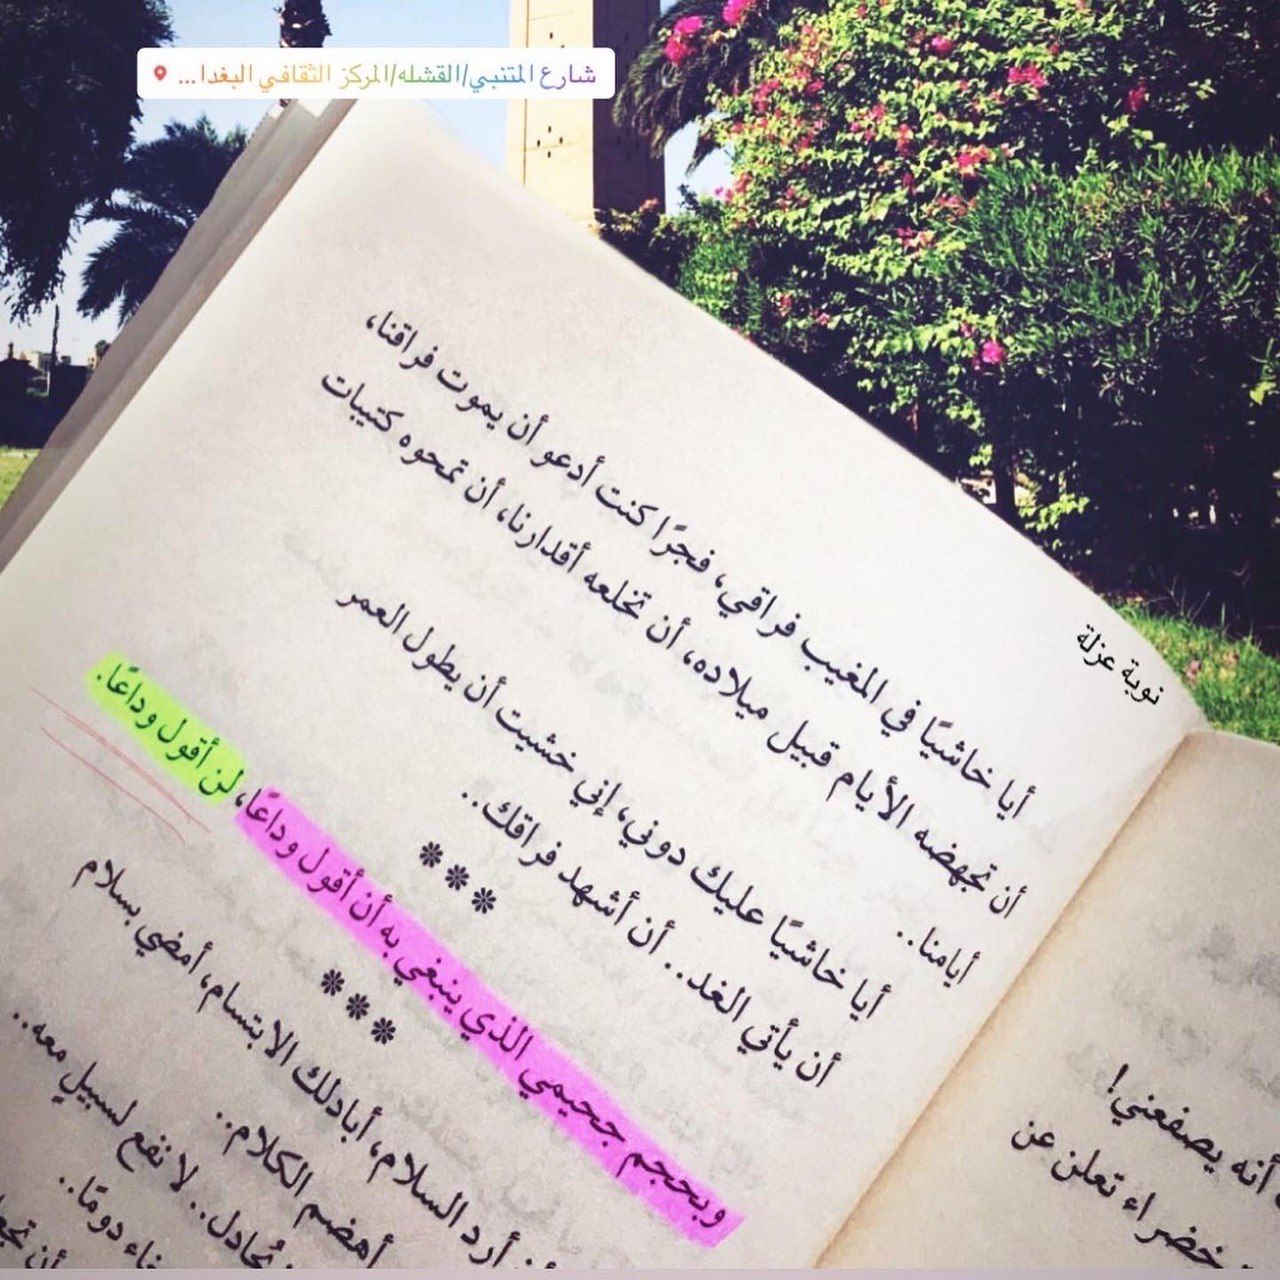 شارع المتنبي/القشله/المركز الثقافي البغدا ...
نوبة عزلة
أيا خاشيًا في المغيب فراقي، فجرًا كنت أدعو أن يموت فراقنا،
أن تجهضه الأيام قبيل ميلاده، أن تخلعه أقدارنا، أن تمحوه كتيبات
أيامنا..
أيا خاشيًا عليك دوني، إني خشيت أن يطول العمر
أن يأتي الغد.. أن أشهد فراقك..
***
وبحجم جحيمي الذي ينبغي به أن أقول وداعًا، لن أقول وداعًا.
***
أرد السلام، أبادلك الابتسام، أمضي بسلام
أهضم الكلام..
تُجادل.. لا تقع لسبيلٍ معه..
دومًا..
أن
أنه يصفعني!
خضراء تعلن عن